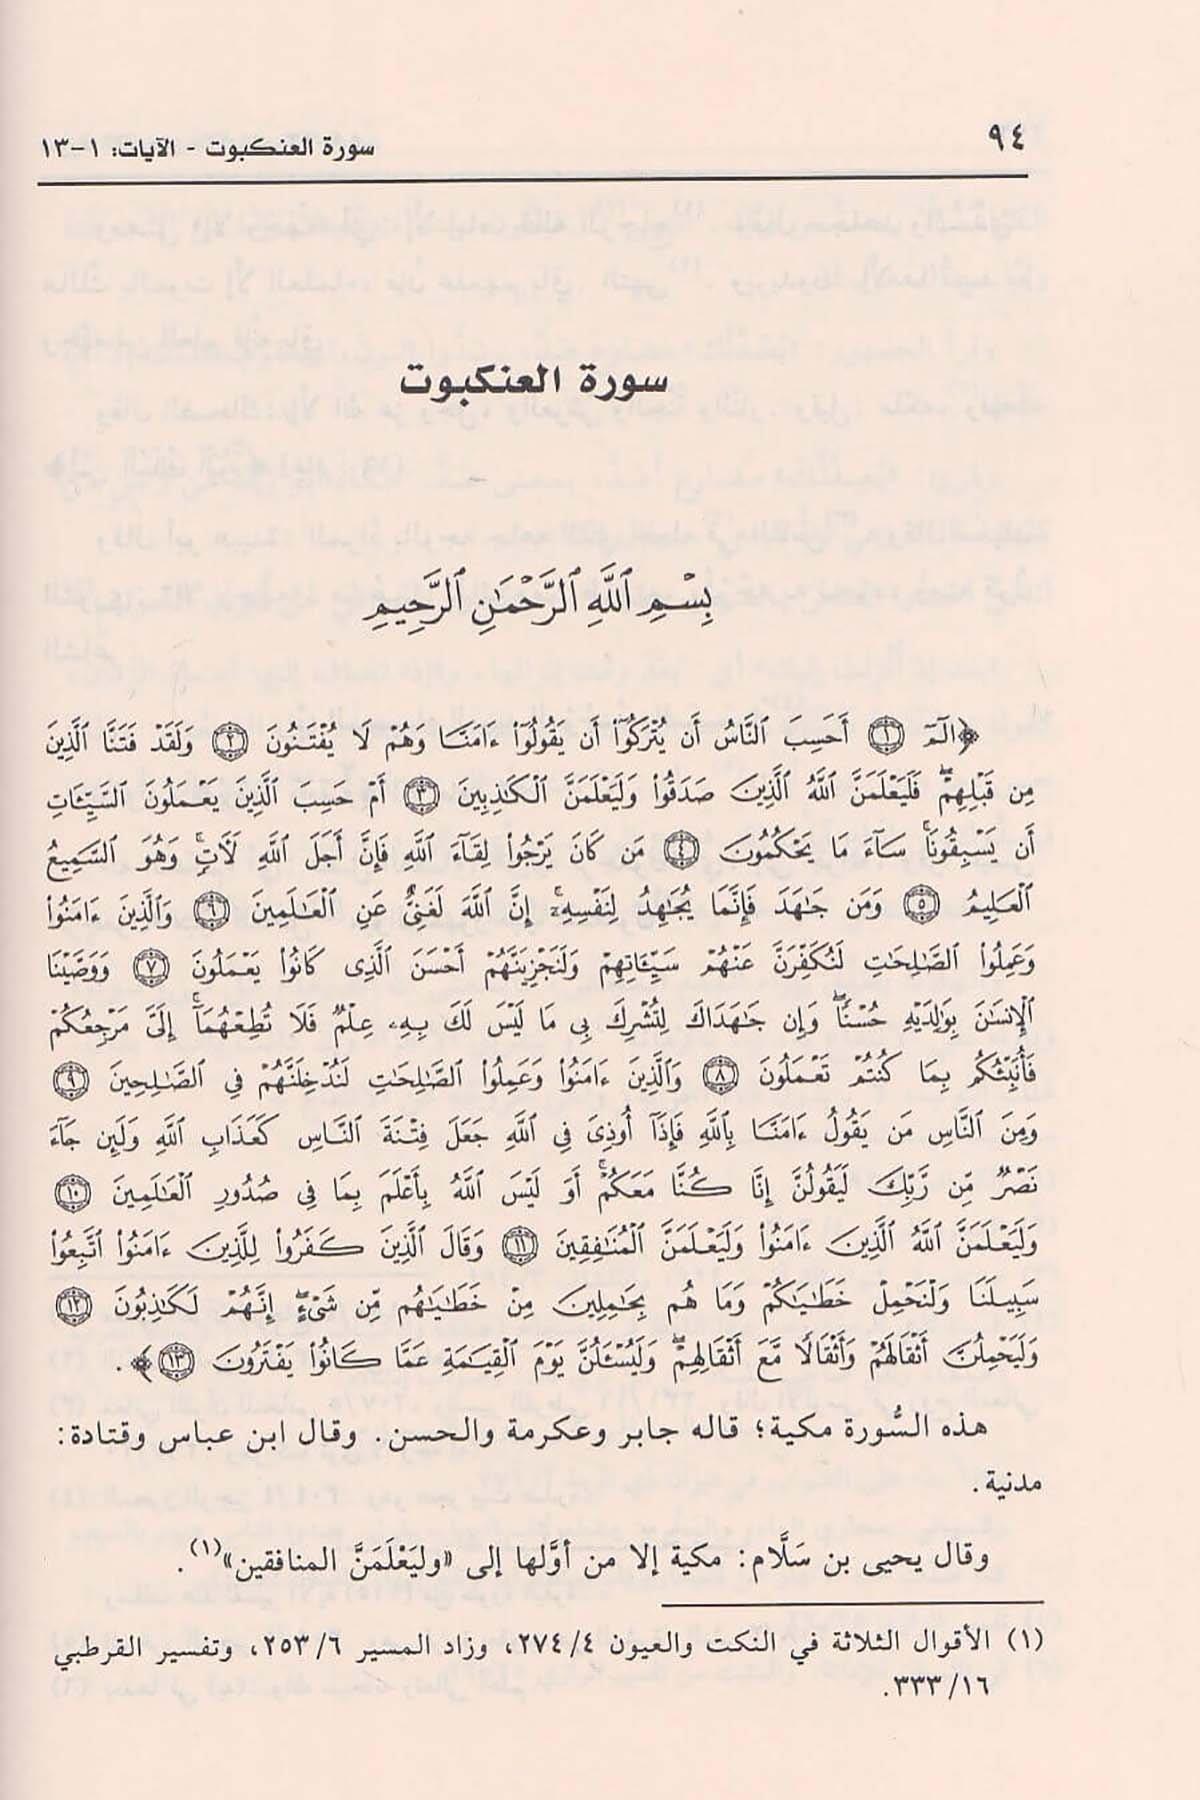 ٩٤
سورة العنكبوت - الآيات: ١-١٣
سورة العنكبوت
بِسْمِ ٱللَّهِ ٱلرَّحْمَٰنِ ٱلرَّحِيمِ
﴿الٓمٓ ١ أَحَسِبَ ٱلنَّاسُ أَن يُتْرَكُوٓا۟ أَن يَقُولُوٓا۟ ءَامَنَّا وَهُمْ لَا يُفْتَنُونَ ٢ وَلَقَدْ فَتَنَّا ٱلَّذِينَ
مِن قَبْلِهِمْ ۖ فَلَيَعْلَمَنَّ ٱللَّهُ ٱلَّذِينَ صَدَقُوا۟ وَلَيَعْلَمَنَّ ٱلْكَٰذِبِينَ ٣ أَمْ حَسِبَ ٱلَّذِينَ يَعْمَلُونَ ٱلسَّيِّـَٔاتِ
أَن يَسْبِقُونَا ۚ سَآءَ مَا يَحْكُمُونَ ٤ مَن كَانَ يَرْجُوا۟ لِقَآءَ ٱللَّهِ فَإِنَّ أَجَلَ ٱللَّهِ لَـَٔاتٍ ۚ وَهُوَ ٱلسَّمِيعُ
ٱلْعَلِيمُ ٥ وَمَن جَٰهَدَ فَإِنَّمَا يُجَٰهِدُ لِنَفْسِهِۦٓ ۚ إِنَّ ٱللَّهَ لَغَنِىٌّ عَنِ ٱلْعَٰلَمِينَ ٦ وَٱلَّذِينَ ءَامَنُوا۟
وَعَمِلُوا۟ ٱلصَّٰلِحَٰتِ لَنُكَفِّرَنَّ عَنْهُمْ سَيِّـَٔاتِهِمْ وَلَنَجْزِيَنَّهُمْ أَحْسَنَ ٱلَّذِى كَانُوا۟ يَعْمَلُونَ ٧ وَوَصَّيْنَا
ٱلْإِنسَٰنَ بِوَٰلِدَيْهِ حُسْنًا ۖ وَإِن جَٰهَدَاكَ لِتُشْرِكَ بِى مَا لَيْسَ لَكَ بِهِۦ عِلْمٌ فَلَا تُطِعْهُمَآ ۚ إِلَىَّ مَرْجِعُكُمْ
فَأُنَبِّئُكُم بِمَا كُنتُمْ تَعْمَلُونَ ٨ وَٱلَّذِينَ ءَامَنُوا۟ وَعَمِلُوا۟ ٱلصَّٰلِحَٰتِ لَنُدْخِلَنَّهُمْ فِى ٱلصَّٰلِحِينَ ٩
وَمِنَ ٱلنَّاسِ مَن يَقُولُ ءَامَنَّا بِٱللَّهِ فَإِذَآ أُوذِىَ فِى ٱللَّهِ جَعَلَ فِتْنَةَ ٱلنَّاسِ كَعَذَابِ ٱللَّهِ وَلَئِن جَآءَ
نَصْرٌ مِّن رَّبِّكَ لَيَقُولُنَّ إِنَّا كُنَّا مَعَكُمْ ۚ أَوَ لَيْسَ ٱللَّهُ بِأَعْلَمَ بِمَا فِى صُدُورِ ٱلْعَٰلَمِينَ ١٠
وَلَيَعْلَمَنَّ ٱللَّهُ ٱلَّذِينَ ءَامَنُوا۟ وَلَيَعْلَمَنَّ ٱلْمُنَٰفِقِينَ ١١ وَقَالَ ٱلَّذِينَ كَفَرُوا۟ لِلَّذِينَ ءَامَنُوا۟ ٱتَّبِعُوا۟
سَبِيلَنَا وَلْنَحْمِلْ خَطَٰيَٰكُمْ وَمَا هُم بِحَٰمِلِينَ مِنْ خَطَٰيَٰهُم مِّن شَىْءٍ ۖ إِنَّهُمْ لَكَٰذِبُونَ ١٢
وَلَيَحْمِلُنَّ أَثْقَالَهُمْ وَأَثْقَالًا مَّعَ أَثْقَالِهِمْ ۖ وَلَيُسْـَٔلُنَّ يَوْمَ ٱلْقِيَٰمَةِ عَمَّا كَانُوا۟ يَفْتَرُونَ ١٣﴾.
هذه السُّورة مكية؛ قاله جابر وعكرمة والحسن. وقال ابن عباس وقتادة:
مدنية.
وقال يحيى بن سَلَّام: مكية إلا من أوَّلها إلى «وليَعْلَمَنَّ المنافقين»(١).
(١) الأقوال الثلاثة في النكت والعيون ٤/ ٢٧٤، وزاد المسير ٦/ ٢٥٣، وتفسير القرطبي
١٦/ ٣٣٣.